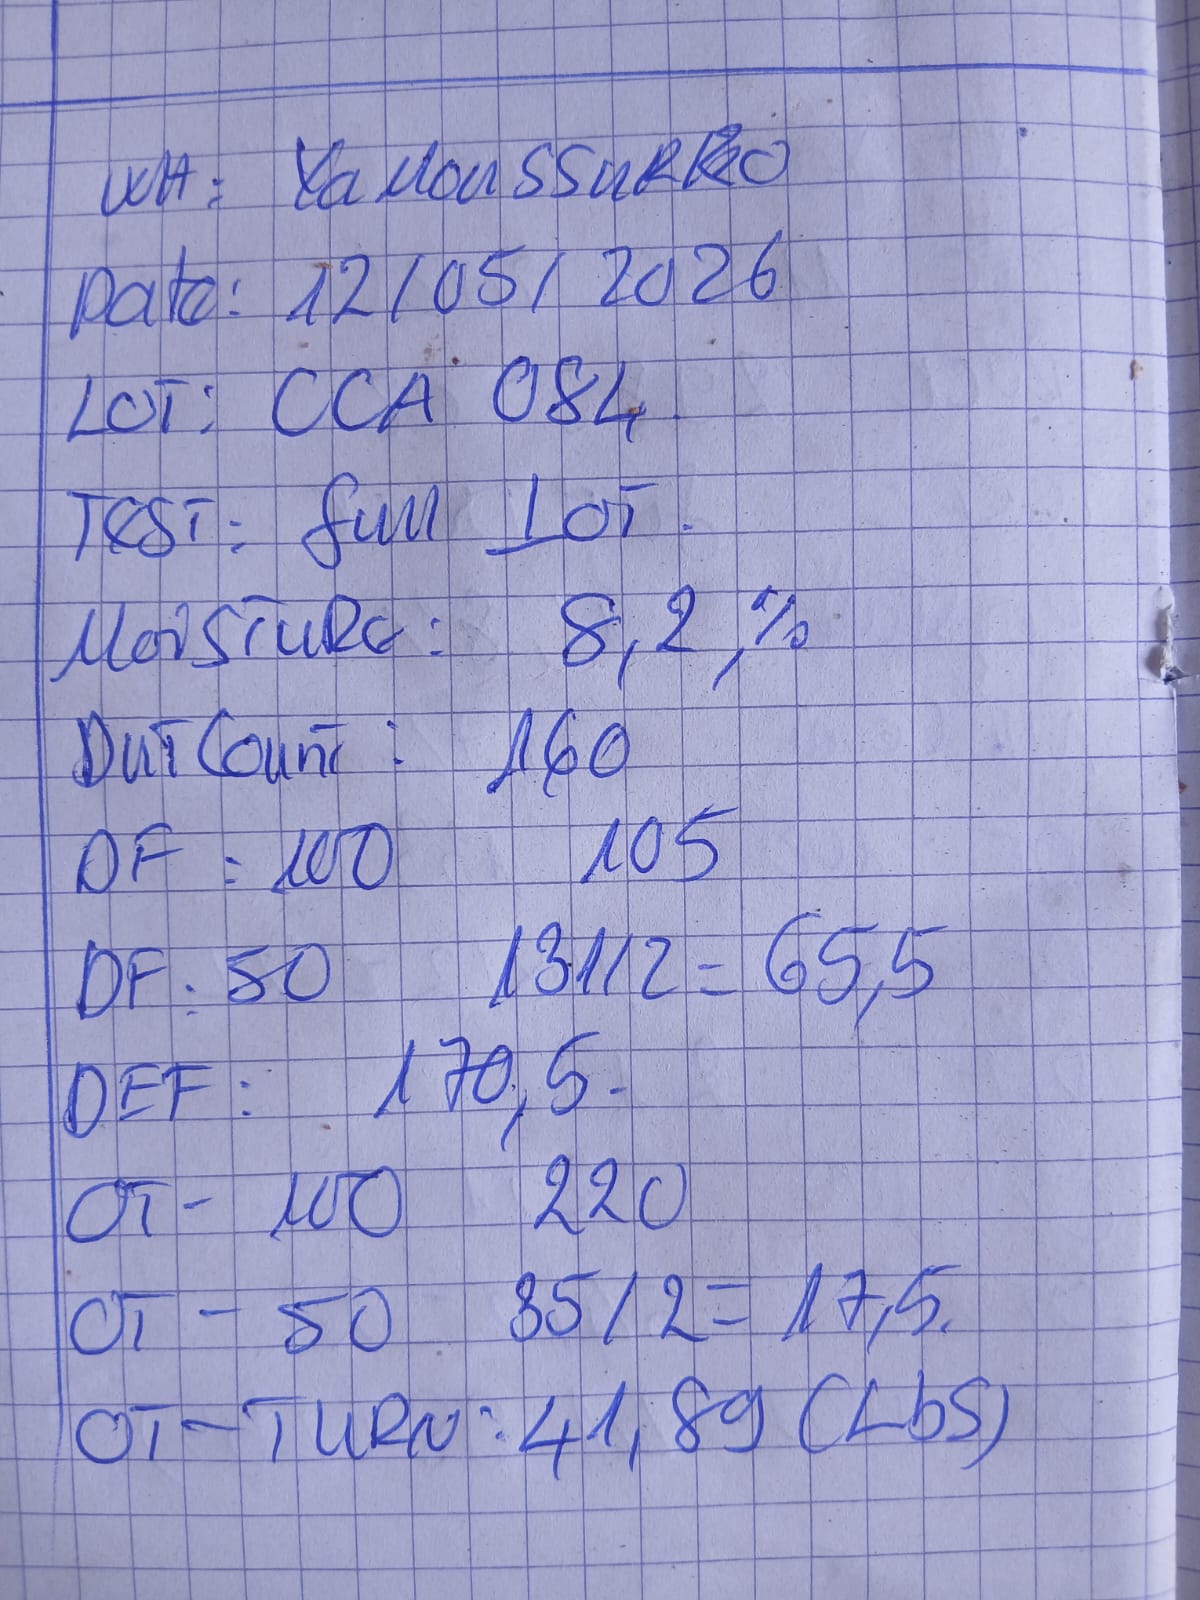 WH: YaMouSSuKRO
Date: 12/05/2026
LOT: CCA 084.
TEST: full LOT.
MoiSTuRe: 8,2,%
NutCount: 160
DF: 100 105
DF: 50 131/2=65,5
DEF: 170,5.
OT- 100 220
OT- 50 35/2=17,5.
OT-TURN: 41,89 (LbS)